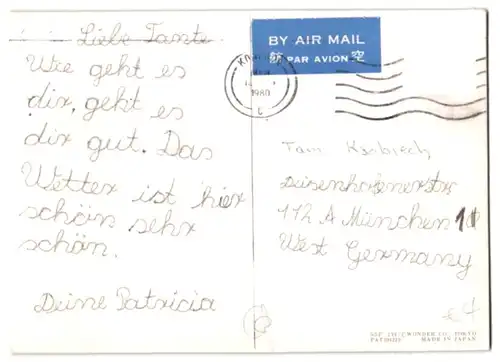 Liebe Tante
Wie geht es
dir, geht es
dir gut. Das
Wetter ist hier
schön sehr
schön.
Deine Patricia
BY AIR MAIL
航 PAR AVION 空
1980
Deisenhofenerstr
112 A München
West Germany
TOKYO
MADE IN JAPAN